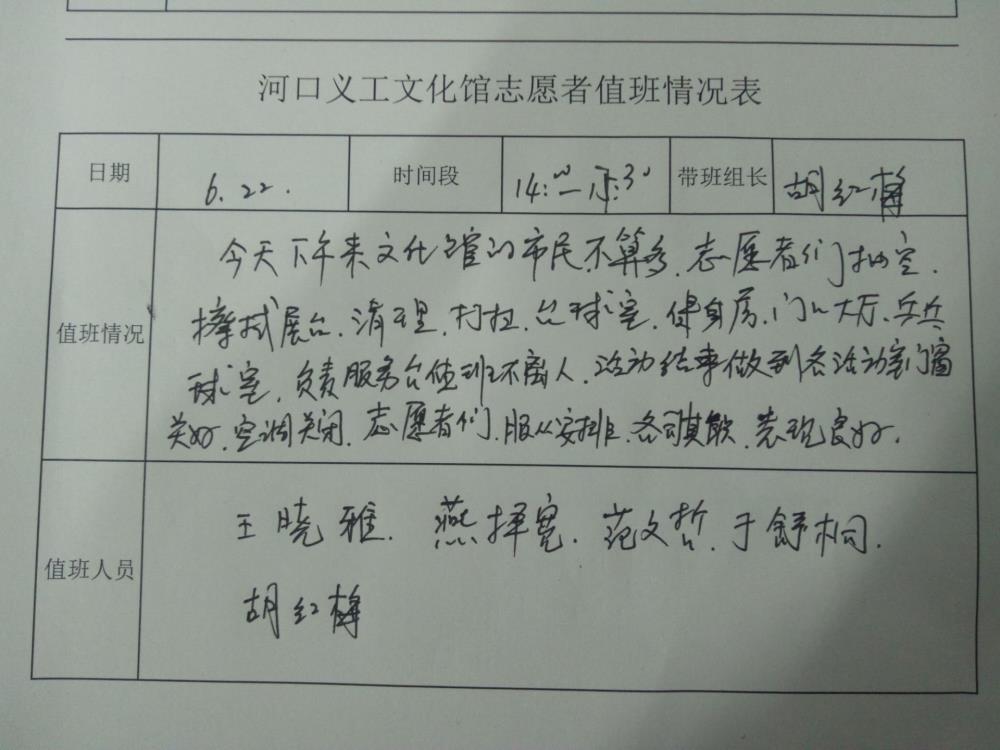 河口义工文化馆志愿者值班情况表
日期 6.22. 时间段 14:00-17:30 带班组长 胡红梅
今天下午来文化馆的市民不算多.志愿者们抽空.
擦拭展台.清理.打扫.台球室.健身房.门口大厅.乒乓
值班情况
球室.负责服务台值班不离人.活动结束做到各活动室门窗
关好.空调关闭.志愿者们.服从安排.各司其职.表现良好.
王晓雅.燕择宽.范文哲.于舒桐.
值班人员
胡红梅